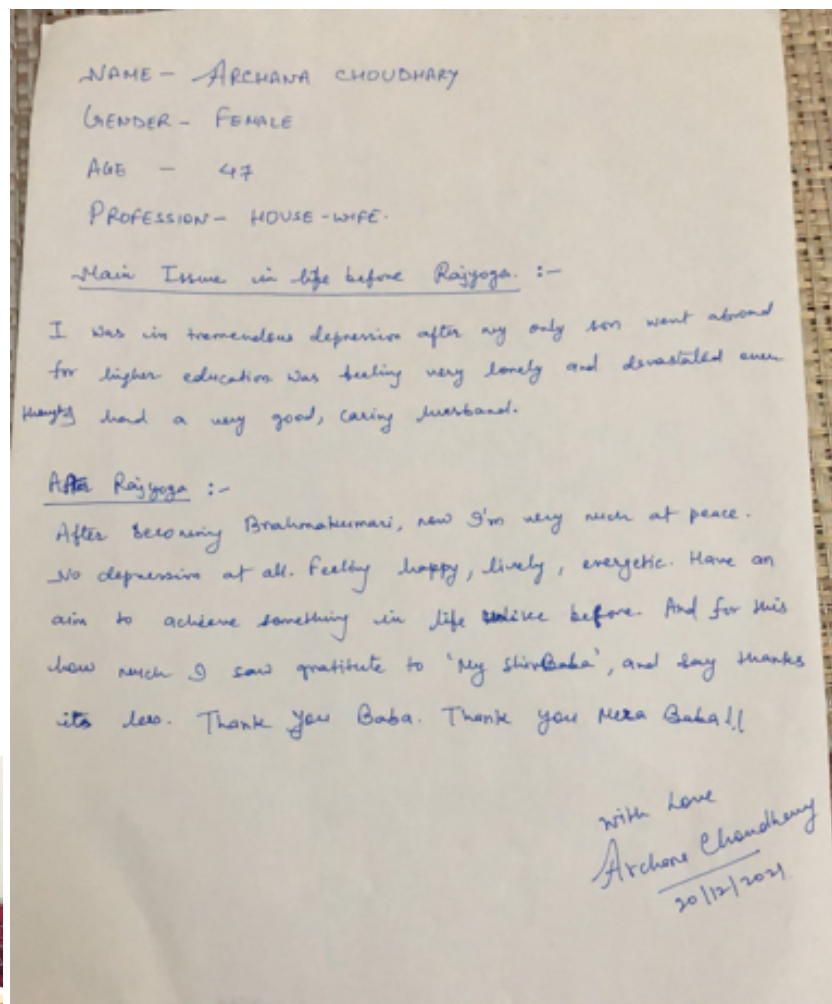 NAME - ARCHANA CHOUDHARY
GENDER - FEMALE
AGE - 47
PROFESSION - HOUSE-WIFE.
Main Issue in life before Rajyoga. :-
I was in tremendous depression after my only son went abroad
for higher education was feeling very lonely and devastated even
though I had a very good, caring husband.
After Rajyoga :-
After becoming Brahmakumari, now I'm very much at peace.
No depression at all. Feeling happy, lively, energetic. Have an
aim to achieve something in life unlike before. And for this
how much I saw gratitute to 'My ShivBaba', and say thanks
its less. Thank you Baba. Thank you Mera Baba!!
with Love
Archana Choudhary
20/12/2021